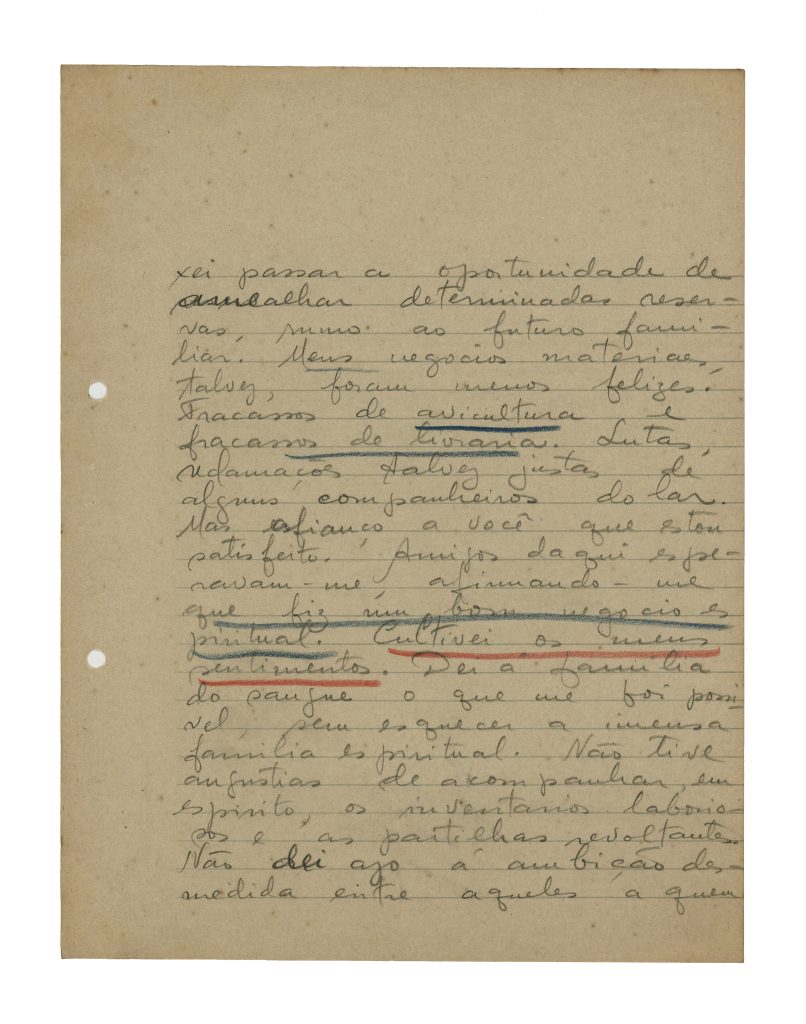 xei passar a oportunidade de
amealhar determinadas reser-
vas, rumo ao futuro fami-
liar. Meus negocios materiaes,
talvez, foram menos felizes.
Fracassos de avicultura e
fracassos de livraria. Lutas,
reclamações talvez justas de
alguns companheiros do lar.
Mas afianço a você que estou
satisfeito. Amigos daqui espe-
ravam-me, afirmando-me
que fiz um bom negocio es
piritual. Cultivei os meus
sentimentos. Dei á familia
do sangue o que me foi possi-
vel, sem esquecer a imensa
familia espiritual. Não tive
angustias de acompanhar, em
espirito, os inventarios laborio-
sos e as partilhas revoltantes.
Não dei azo á ambição des-
medida entre aqueles a quem